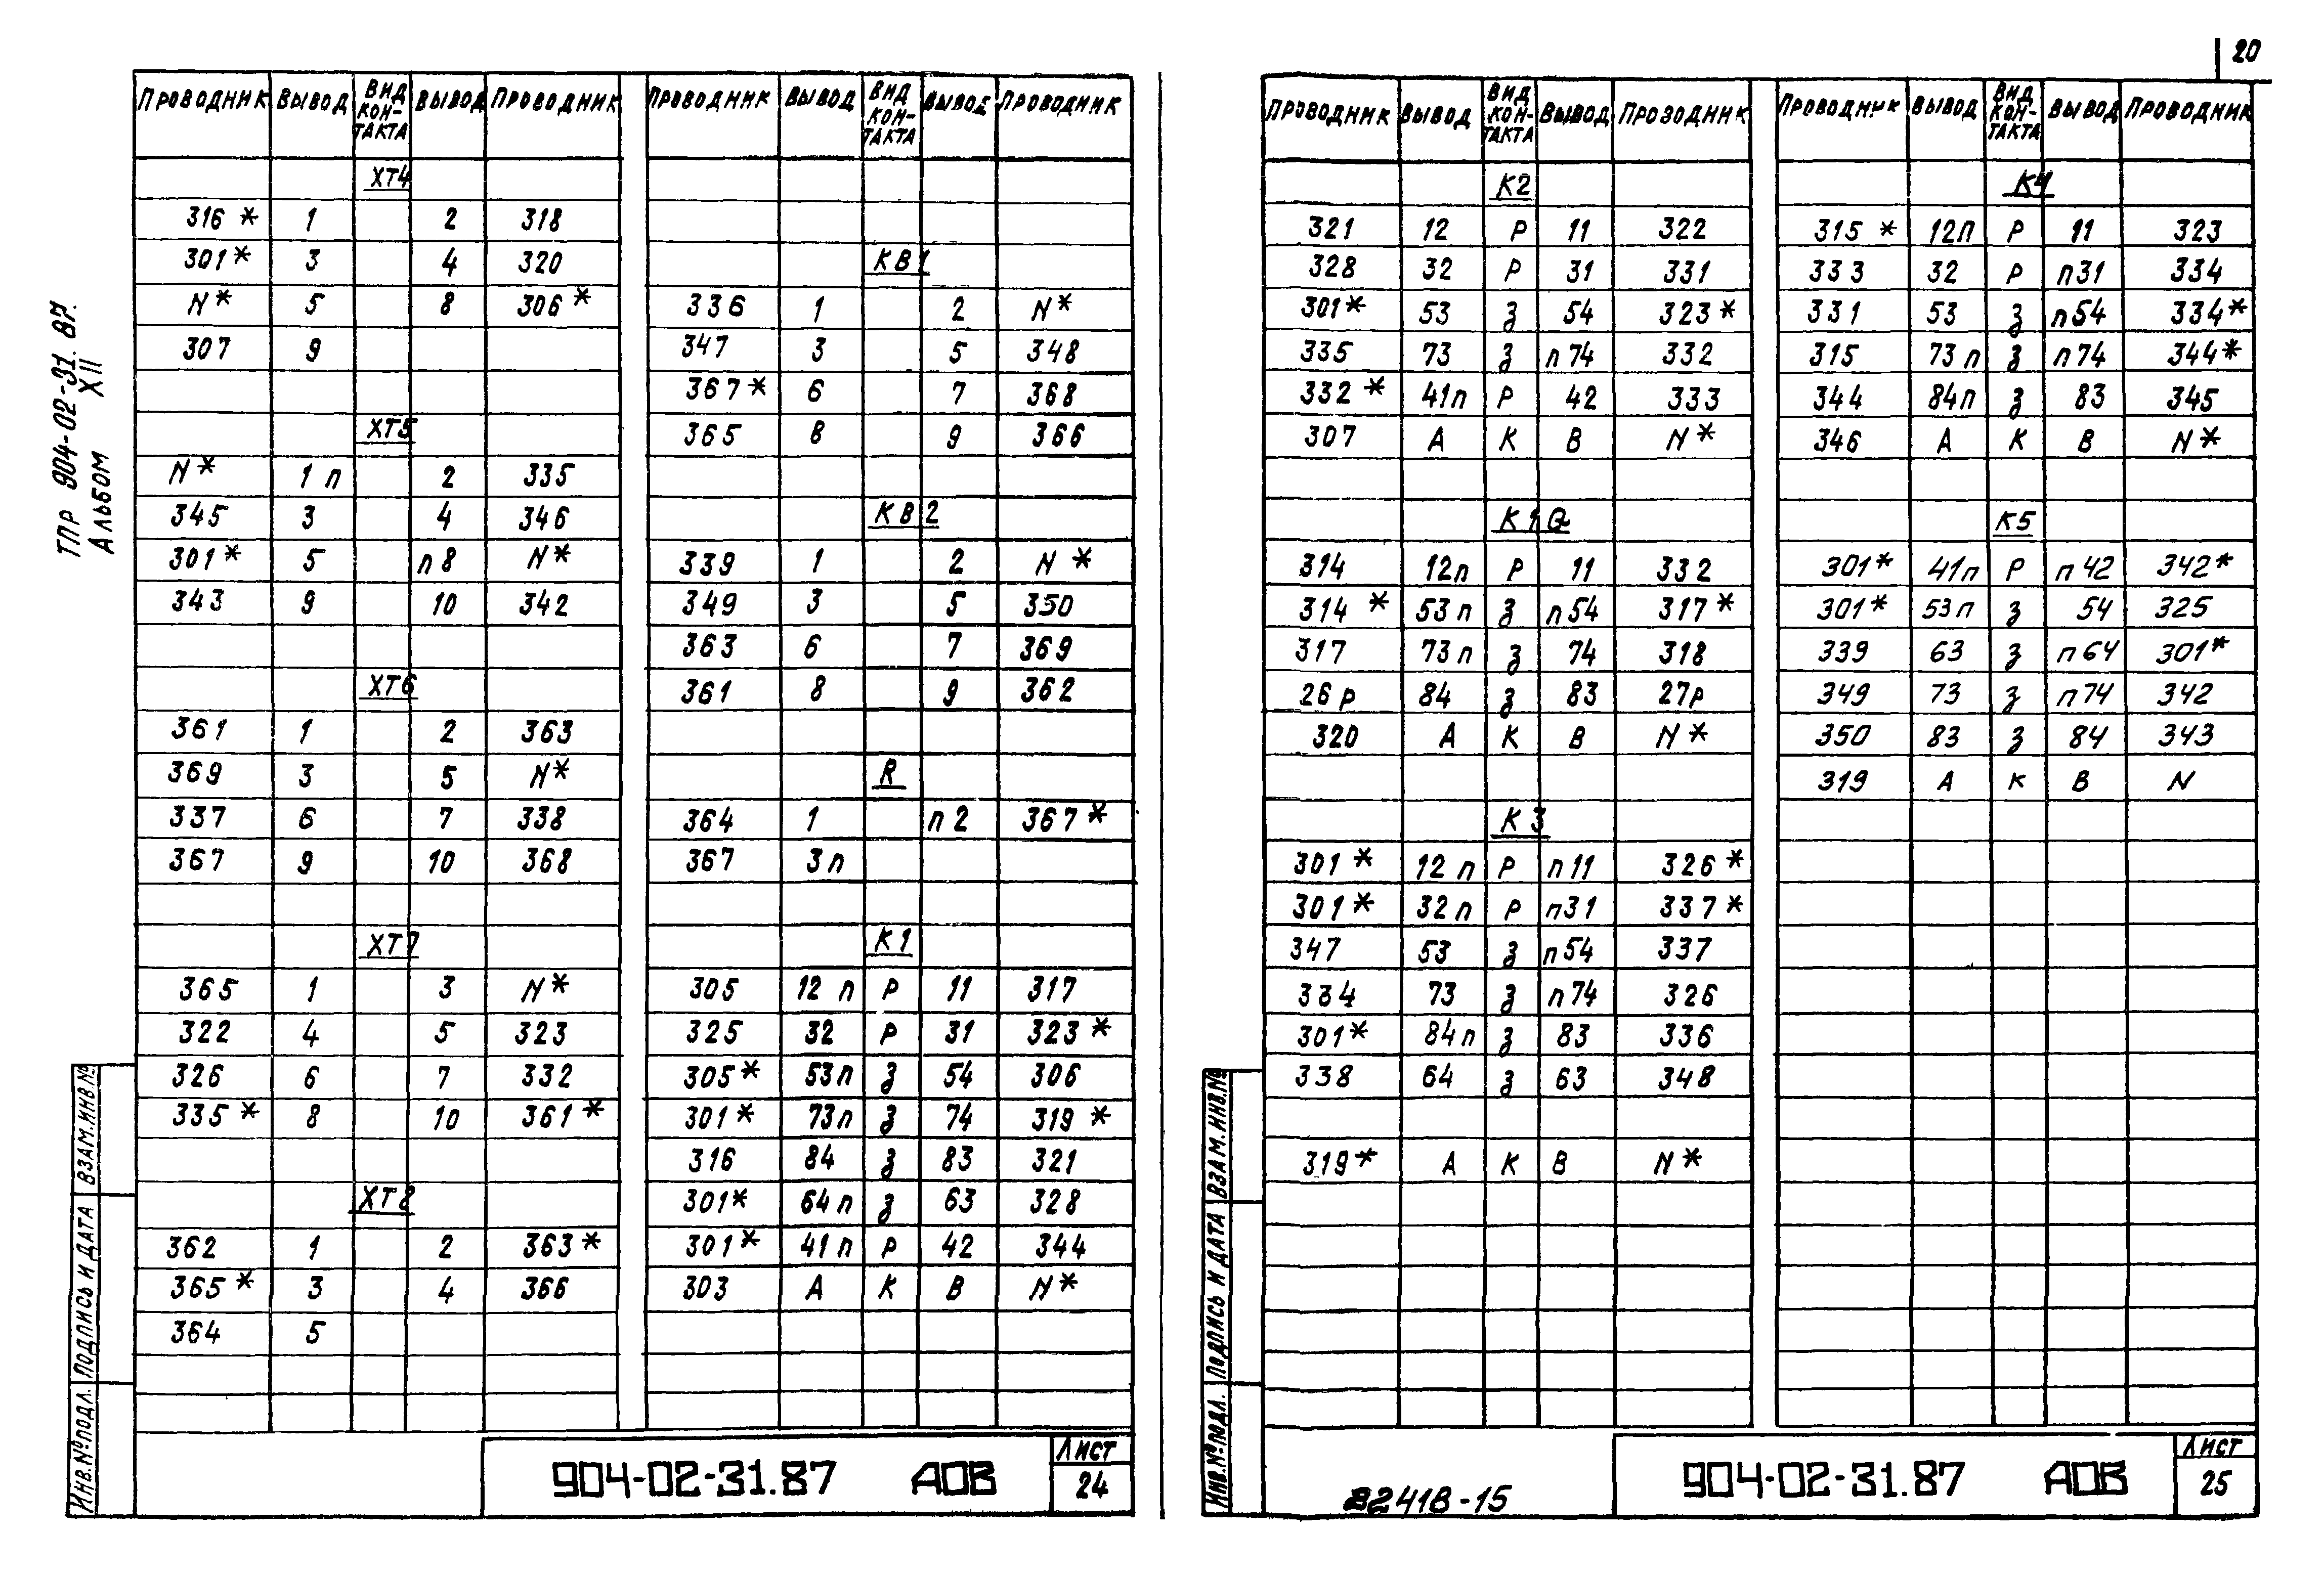 20
ТПР 904-02-31.87.
Альбом XII
Проводник Вывод Вид контакта Вывод Проводник
ХТ4
316* 1 2 318
301* 3 4 320
N* 5 8 306*
307 9
ХТ5
N* 1п 2 335
345 3 4 346
301* 5 п8 N*
343 9 10 342
ХТ6
361 1 2 363
369 3 5 N*
337 6 7 338
367 9 10 368
ХТ7
365 1 3 N*
322 4 5 323
326 6 7 332
335* 8 10 361*
ХТ8
362 1 2 363*
365* 3 4 366
364 5
Проводник Вывод Вид контакта Вывод Проводник
КВ1
336 1 2 N*
347 3 5 348
367* 6 7 368
365 8 9 366
КВ2
339 1 2 N*
349 3 5 350
363 6 7 369
361 8 9 362
R
364 1 п2 367*
367 3п
К1
305 12п Р 11 317
325 32 Р 31 323*
305* 53п З 54 306
301* 73п З 74 319*
316 84 З 83 321
301* 64п З 63 328
301* 41п Р 42 344
303 А К В N*
Инв.№подл. Подпись и дата Взам.инв.№
904-02-31.87 АОВ
Лист
24
Проводник Вывод Вид контакта Вывод Проводник
К2
321 12 Р 11 322
328 32 Р 31 331
301* 53 З 54 323*
335 73 З п74 332
332* 41п Р 42 333
307 А К В N*
К1Q
314 12п Р 11 332
314* 53п З п54 317*
317 73п З 74 318
26р 84 З 83 27р
320 А К В N*
К3
301* 12п Р п11 326*
301* 32п Р п31 337*
347 53 З п54 337
334 73 З п74 326
301* 84п З 83 336
338 64 З 63 348
319* А К В N*
Проводник Вывод Вид контакта Вывод Проводник
К4
315* 12п Р 11 323
333 32 Р п31 334
331 53 З п54 334*
315 73п З п74 344*
344 84п З 83 345
346 А К В N*
К5
301* 41п Р п42 342*
301* 53п З 54 325
339 63 З п64 301*
349 73 З п74 342
350 83 З 84 343
319 А К В N
Инв.№подл. Подпись и дата Взам.инв.№
22418-15
904-02-31.87 АОВ
Лист
25